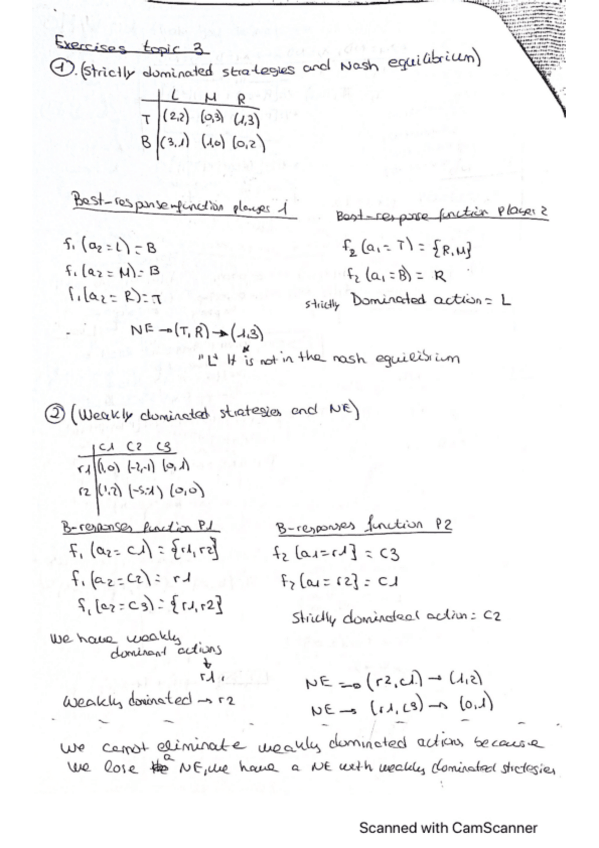 Exercises topic 3
①. (strictly dominated strategies and Nash equilibrium)
L M R
T (2,2) (0,3) (1,3)
B (3,1) (1,0) (0,2)
Best-response function player 1
Best-response function Player 2
f₁ (a₂ = L) = B
f₂ (a₁ = T) = {R,M}
f₁ (a₂ = M) = B
f₂ (a₁ = B) = R
f₁ (a₂ = R) = T
strictly Dominated action = L
NE → (T, R) → (1,3)
"L" It is not in the nash equilibrium
② (Weakly dominated strategies and NE)
C1 C2 C3
r1 (1,0) (-2,-1) (0,1)
r2 (1,2) (-5,-1) (0,0)
B-responses function P1
B-responses function P2
f₁ (a2 = C1) = {r1, r2}
f2 (a1 = r1) = C3
f₁ (a2 = C2) = r1
f2 (a1 = r2) = C1
f₁ (a2 = C3) = {r1, r2}
Strictly dominated action = C2
We have weakly
dominant actions
r1.
NE → (r2, C1) → (1,2)
Weakly dominated → r2
NE → (r1, C3) → (0,1)
We cannot eliminate weakly dominated actions because
We lose a NE, we have a NE with weakly dominated
Scanned with CamScanner